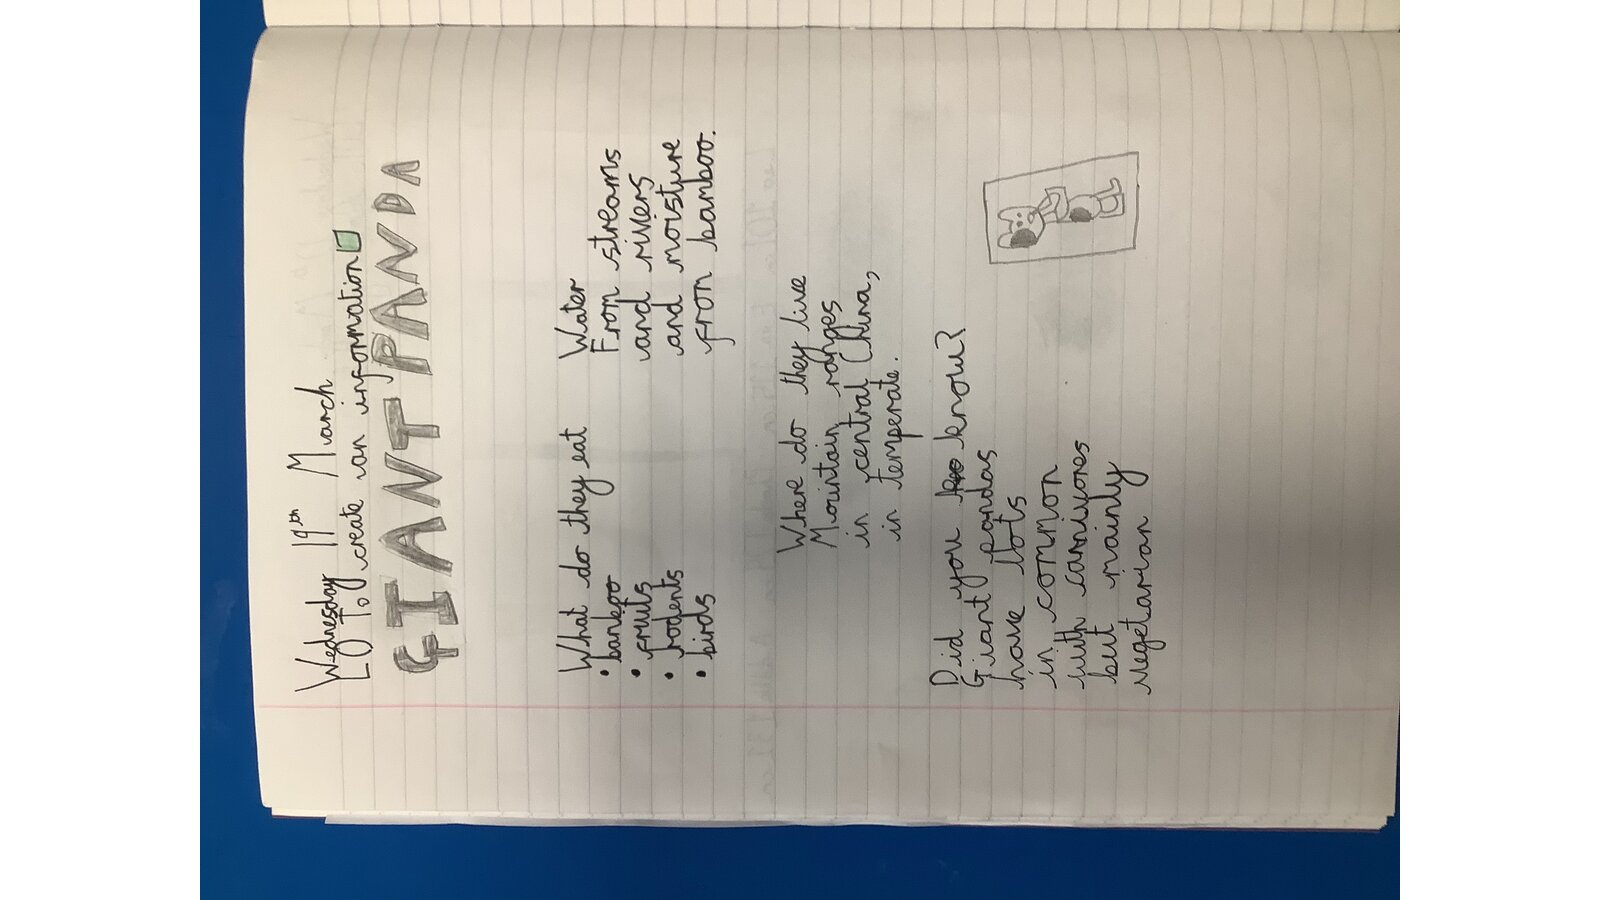 Wednesday 19th March
Lo To create an information
GIANT PANDA
What do they eat
• bamboo
• fruits
• rodents
• birds
Water
From streams
and rivers
and moisture
from bamboo.
Where do they live
Mountain ranges
in central China,
in temperate.
Did you know?
Giant pandas
have lots
in common
with carnivores
but mainly
vegetarian